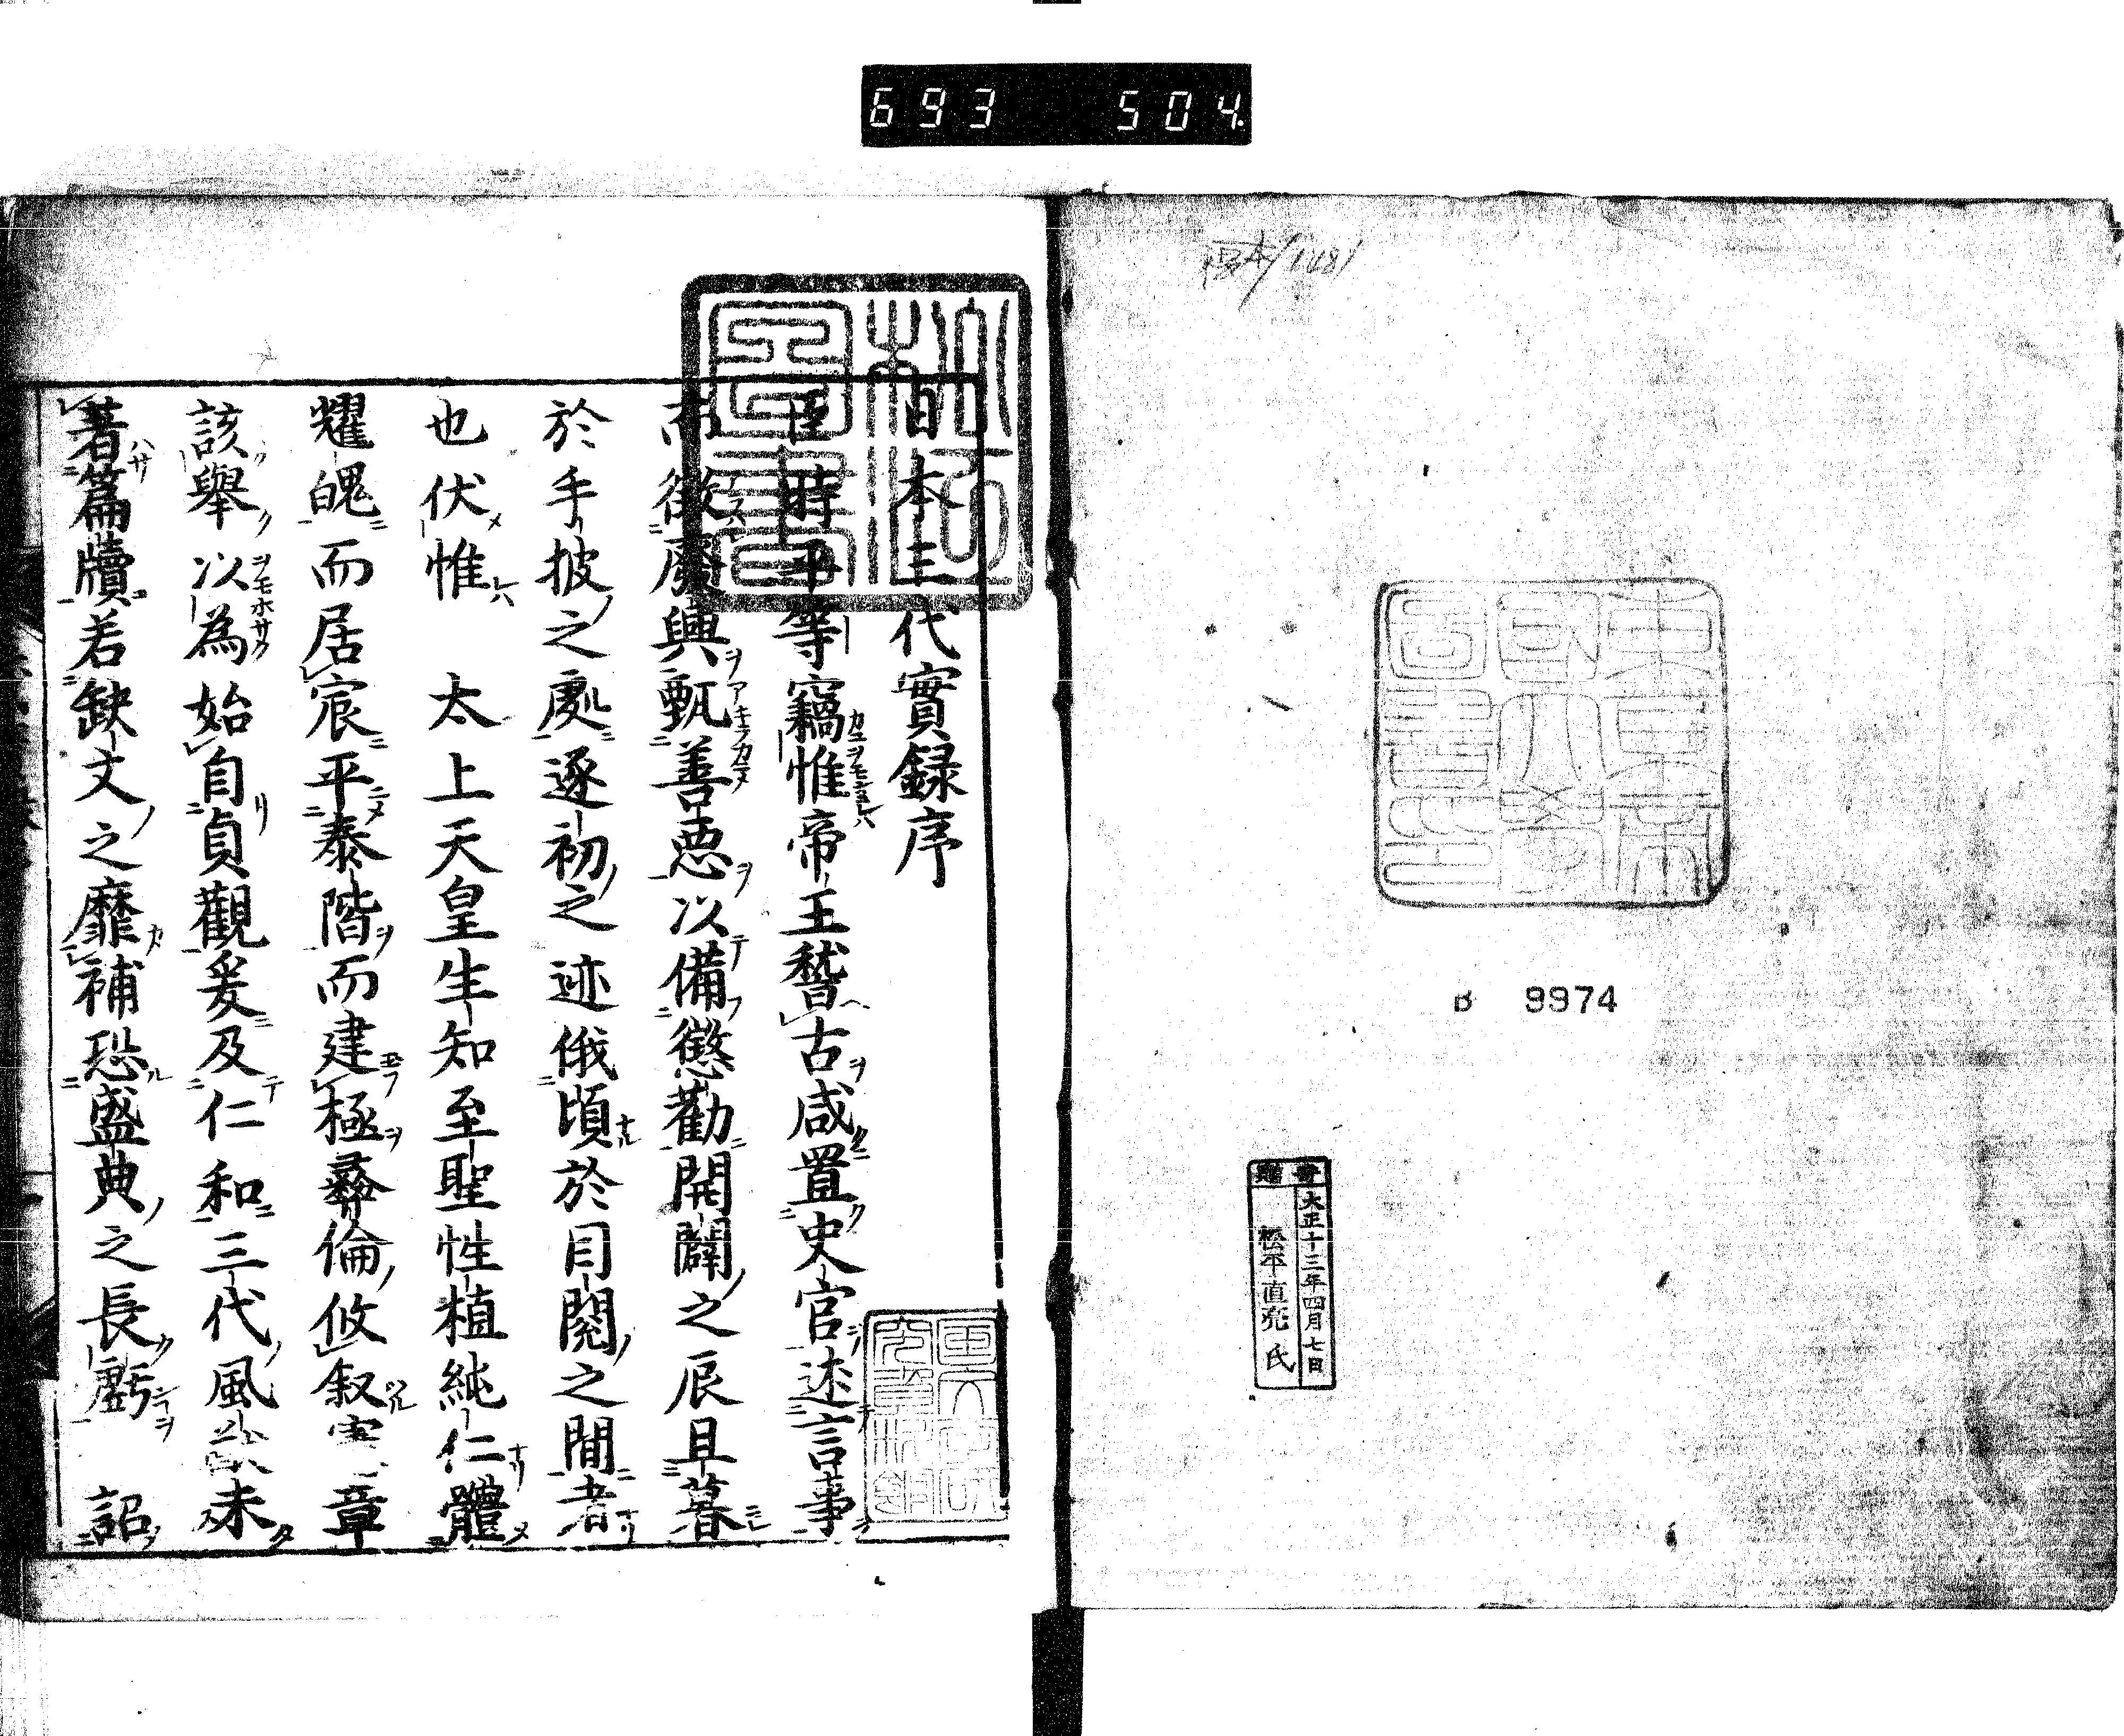 693 504
寫本/1481
東京帝國大學圖書之印
B 9974
寄贈
大正十三年四月七日
松平直亮氏
日本三代實録序
臣時平等竊惟帝王稽古咸置史官述言事
而徵廢興甄善悪以備懲勸開闢之辰且暮
於手披之處逐初之迹俄頃於目閲之間者
也伏惟 太上天皇生知至聖性植純仁體
耀魄而居宸平泰階而建極彝倫攸叙憲章
該舉以為始自貞觀爰及仁和三代風猷未
著篇牘若缺文之靡補恐盛典之長虧 詔